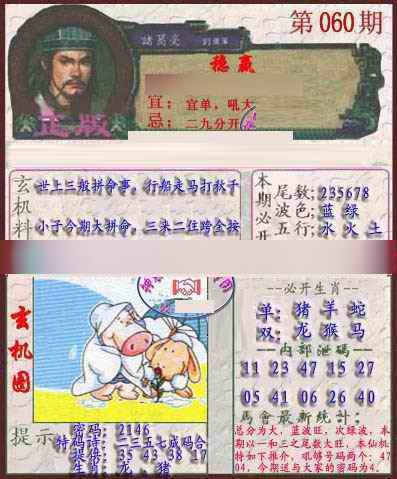 第060期
諸葛亮
稳赢
宜：宜单，吼大
忌：二九分开
正版
玄机料
世上三般拼命事，行船走马打秋千
小子今期大拼命，三来二往跨全按
本期必开
尾数：235678
波色：蓝 绿
五行：水 火 土
玄机图
必开生肖
单：猪 羊 蛇
双：龙 猴 马
内部泄码
11 23 47 15 27
05 41 06 26 40
馬會最新統計：
总分为大，蓝波旺，次绿波，本
期以一和三之尾数大旺，本仙机
特如下推介，吼够号码两个：47
04，今期送与大家的密码为4．
提示
密码：2146
特码诗：二三五七成码合
提供：35 43 38 17
生肖：龙、猪